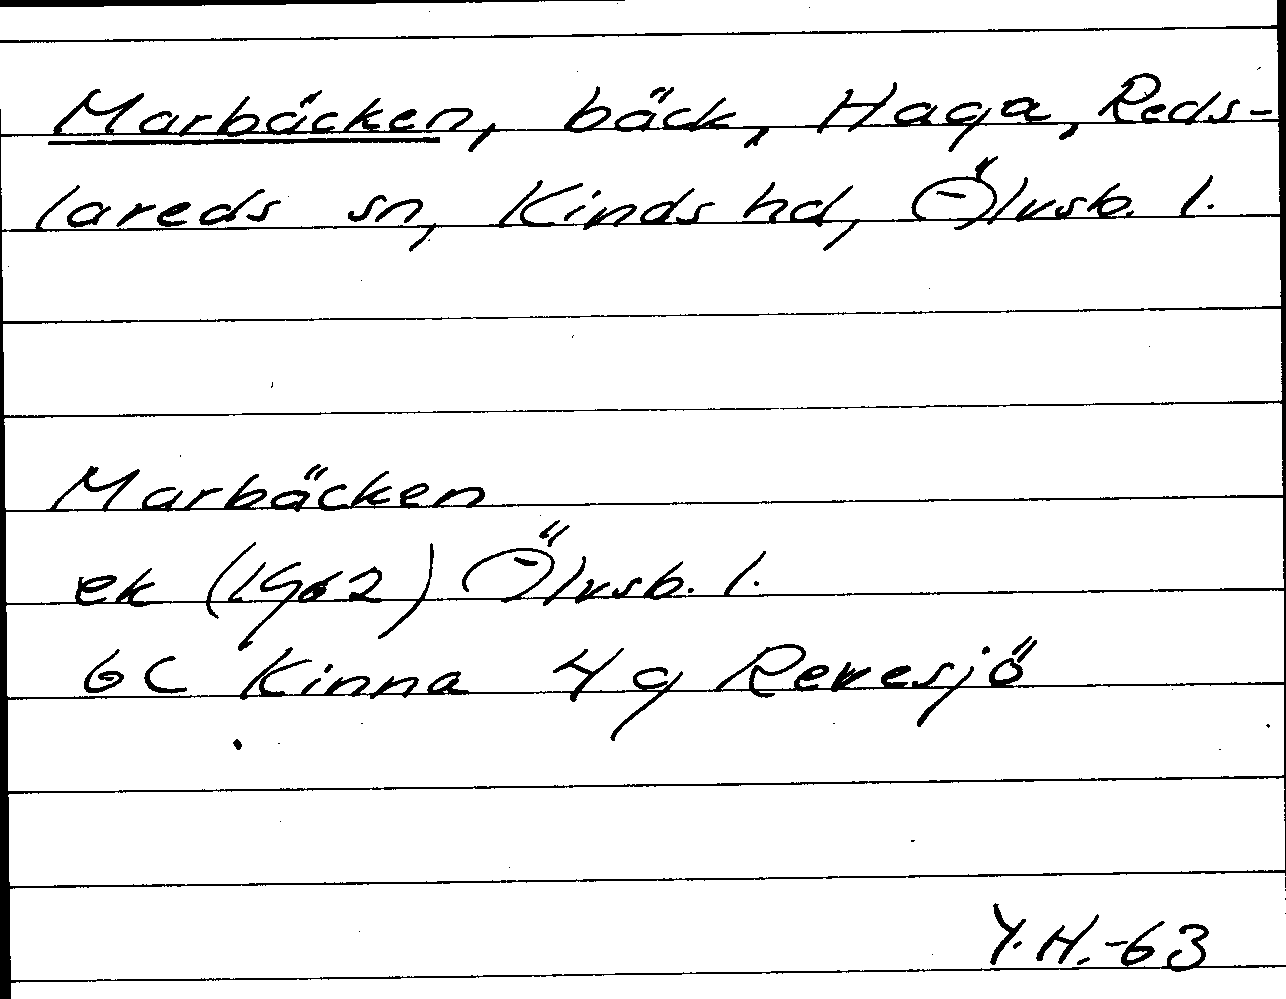 Marbäcken, bäck, Haga, Reds-
lareds sn, Kinds hd, Ölvsb. l.
Marbäcken
ek (1962) Ölvsb. l.
6C Kinna 4g Revesjö
Y.H.-63